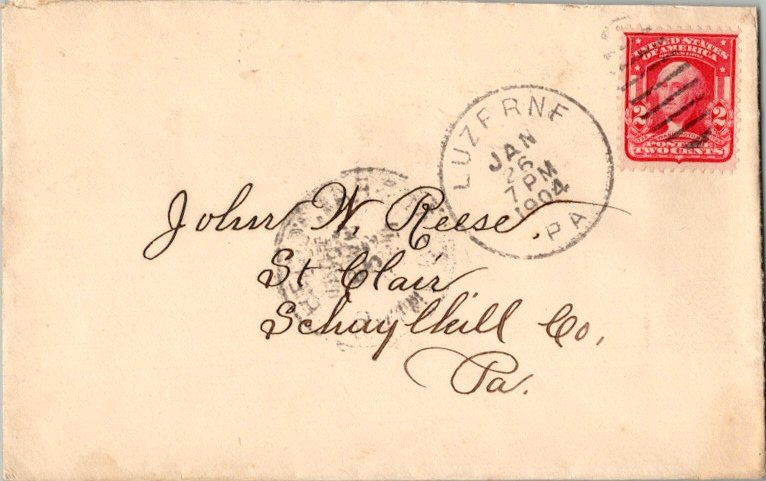 UNITED STATES
OF AMERICA
2 2
POSTAGE
TWO CENTS
LUZERNE
JAN
26
7 PM
1904
PA
John W. Reese.
St Clair
Schuylkill Co.
Pa.